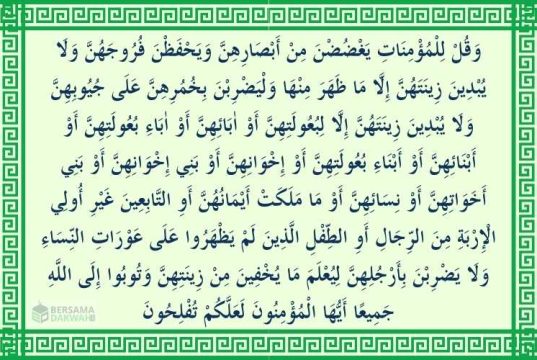 وَقُلْ لِلْمُؤْمِنَاتِ يَغْضُضْنَ مِنْ أَبْصَارِهِنَّ وَيَحْفَظْنَ فُرُوجَهُنَّ وَلَا
يُبْدِينَ زِينَتَهُنَّ إِلَّا مَا ظَهَرَ مِنْهَا وَلْيَضْرِبْنَ بِخُمُرِهِنَّ عَلَى جُيُوبِهِنَّ
وَلَا يُبْدِينَ زِينَتَهُنَّ إِلَّا لِبُعُولَتِهِنَّ أَوْ اٰبَائِهِنَّ أَوْ اٰبَاءِ بُعُولَتِهِنَّ أَوْ
أَبْنَائِهِنَّ أَوْ أَبْنَاءِ بُعُولَتِهِنَّ أَوْ إِخْوَانِهِنَّ أَوْ بَنِي إِخْوَانِهِنَّ أَوْ بَنِي
أَخَوَاتِهِنَّ أَوْ نِسَائِهِنَّ أَوْ مَا مَلَكَتْ أَيْمَانُهُنَّ أَوِ التَّابِعِينَ غَيْرِ أُولِي
الْإِرْبَةِ مِنَ الرِّجَالِ أَوِ الطِّفْلِ الَّذِينَ لَمْ يَظْهَرُوا عَلَى عَوْرَاتِ النِّسَاءِ
وَلَا يَضْرِبْنَ بِأَرْجُلِهِنَّ لِيُعْلَمَ مَا يُخْفِينَ مِنْ زِينَتِهِنَّ وَتُوبُوا إِلَى اللَّهِ
جَمِيعًا أَيُّهَا الْمُؤْمِنُونَ لَعَلَّكُمْ تُفْلِحُونَ
BERSAMA
DAKWAH